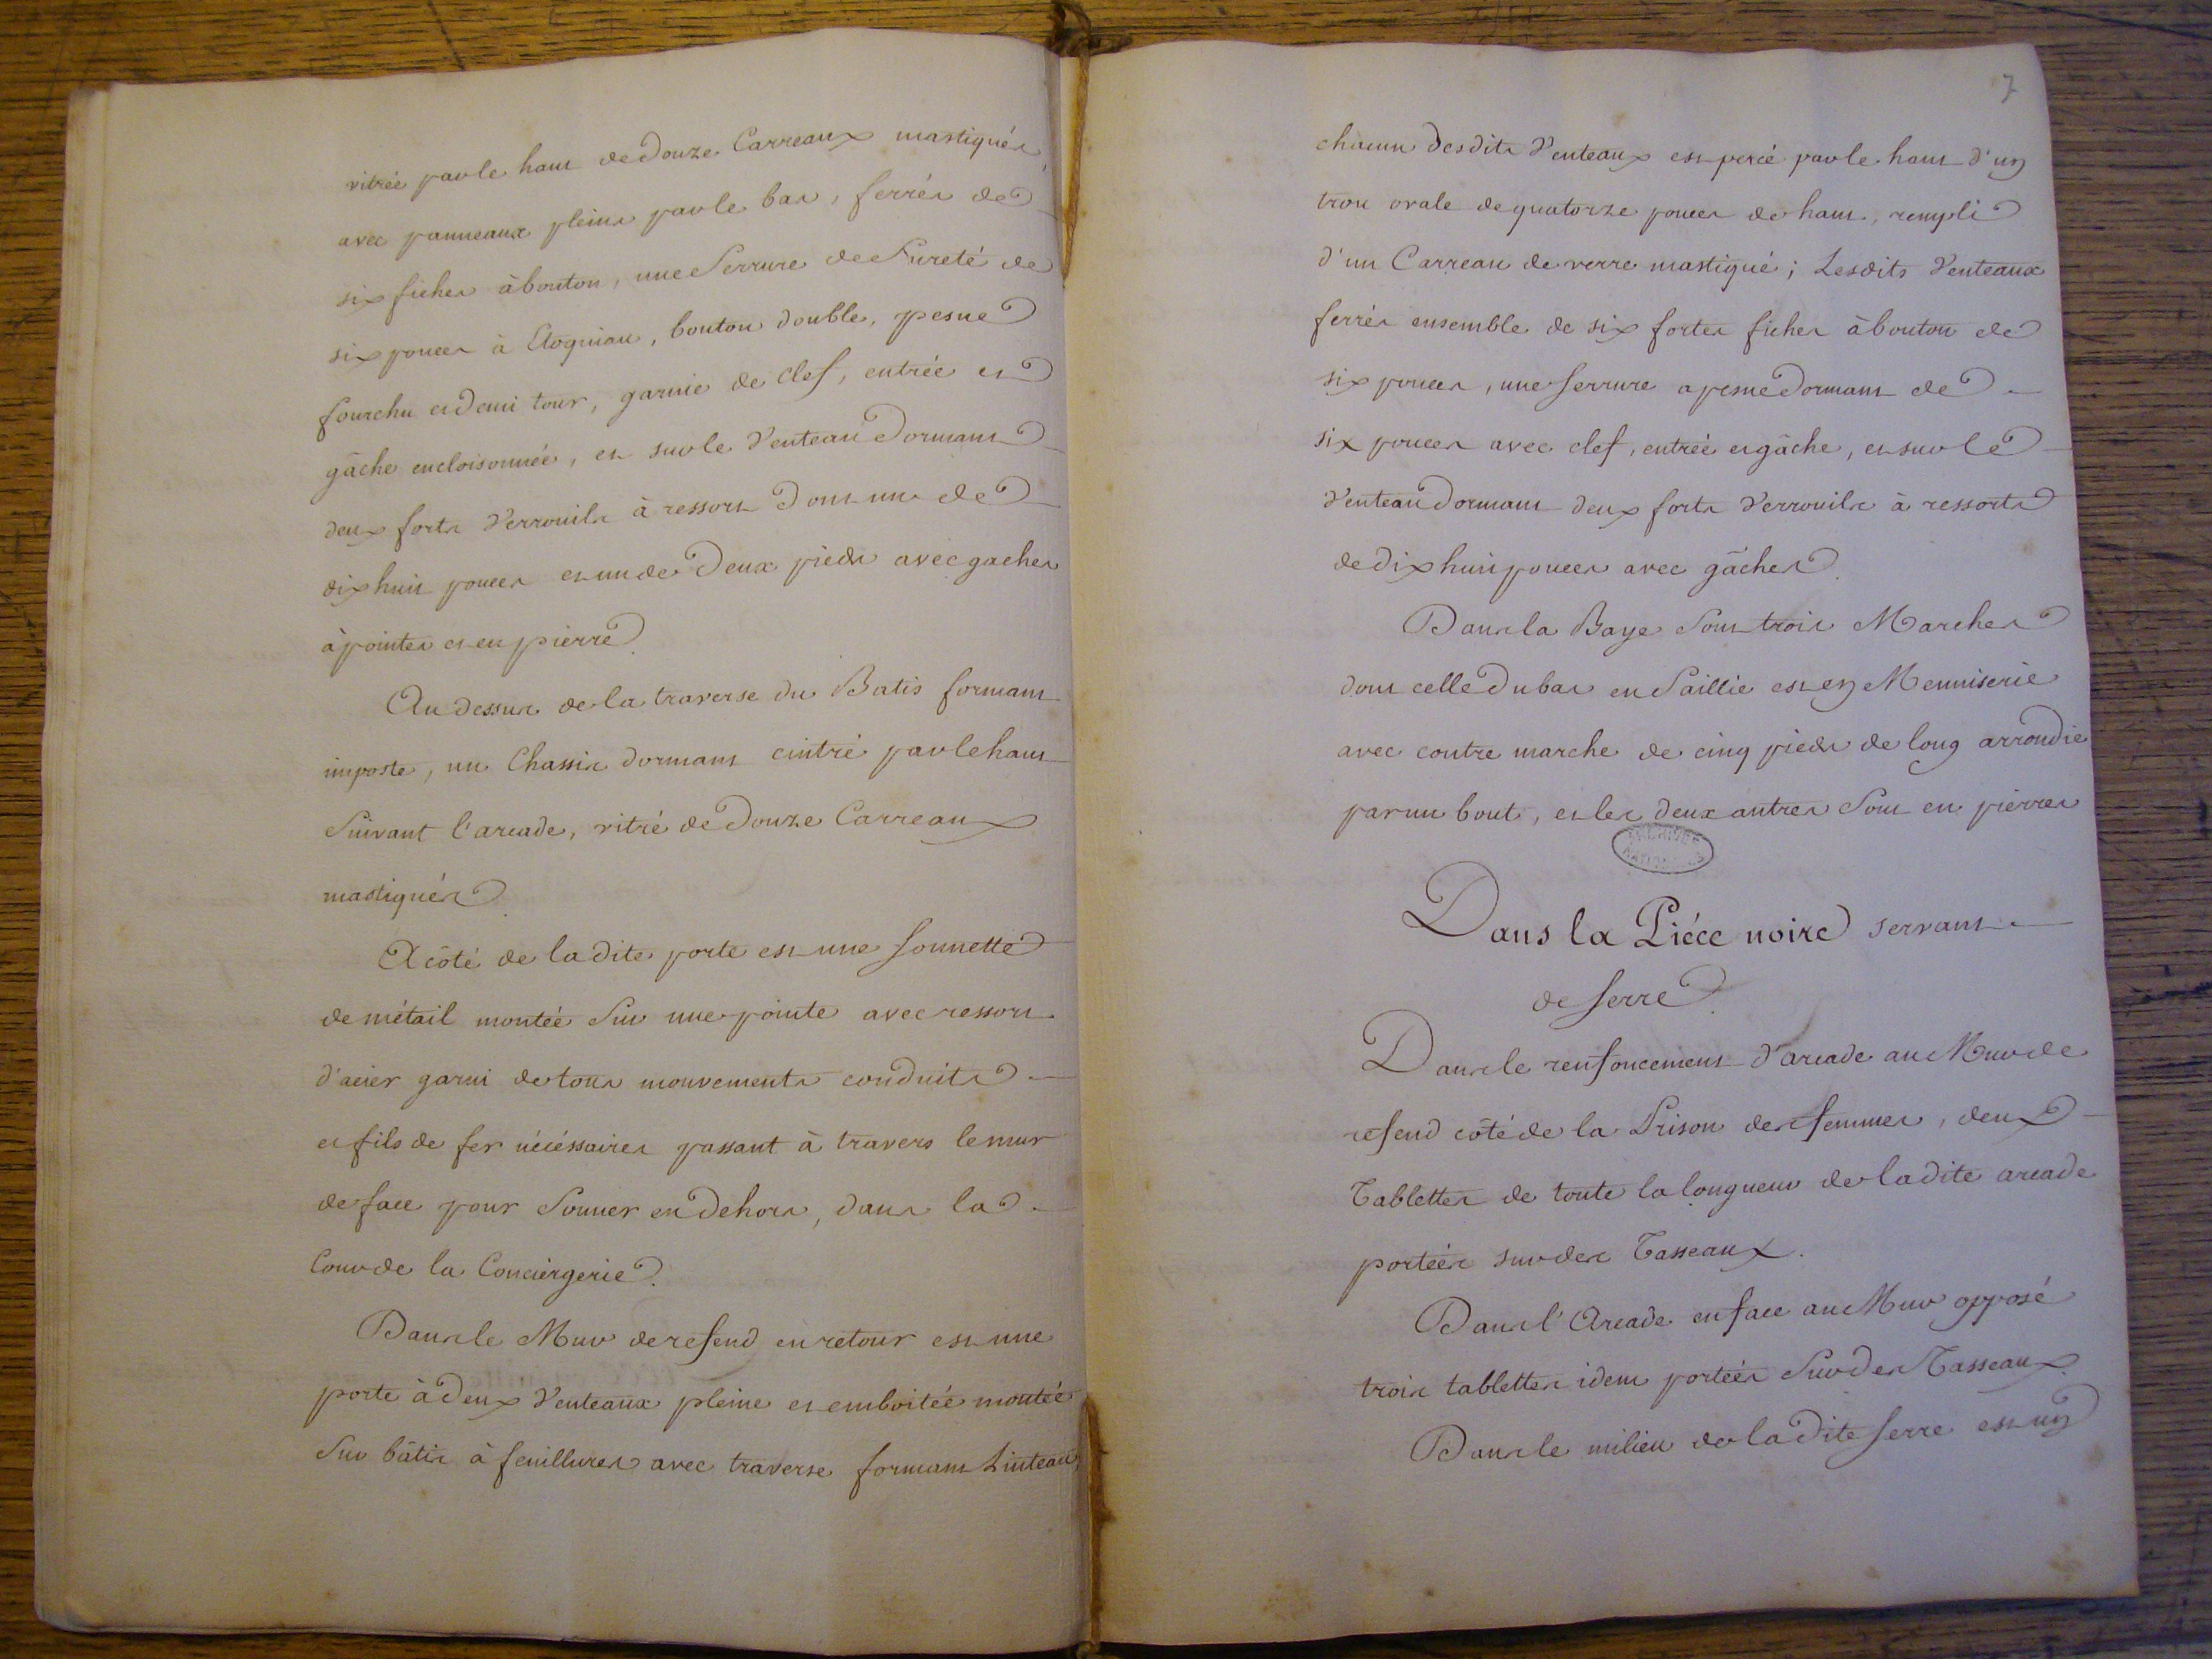 vitrée par le haut de douze Carreaux mastiqués,
avec panneaux pleins par le bas, ferrés de
six fiches à bouton, une Serrure de Sureté de
six pouces à Etoquiau, bouton double, pesne
fourchu et demi tour, garnie de clef, entrée et
gâche encloisonnée, et sur le Venteau dormant
deux forts Verrouils à ressort dont un de
dix huit pouces et un de Deux pieds avec gaches
à pointes et en pierre.
Au dessus de la traverse du Batis formant
imposte, un Chassis dormant cintré par le haut
Suivant l'arcade, vitré de Douze Carreaux
mastiqués.
A côté de la dite porte est une Sonnette
de métail montée Sur une pointe avec ressort
d'acier garni de tous mouvements conduits
et fils de fer nécéssaires passant à travers le mur
de face pour Sonner en dehors, dans la
Cour de la Conciergerie.
Dans le Mur de refend en retour est une
porte à deux Venteaux pleine et emboitée montée
Sur bâtis à feuillures avec traverse formant Linteau,
7
chacun desdits Venteaux est percé par le haut d'un
trou ovale de quatorze pouces de haut, rempli
d'un Carreau de verre mastiqué; Lesdits Venteaux
ferrés ensemble de six fortes fiches à bouton de
six pouces, une Serrure a pesne dormant de
six pouces avec clef, entrée et gâche, et sur le
Venteau dormant deux forts Verrouils à ressorts
de dix huit pouces avec gâches.
Dans la Baye Sont trois Marches
dont celle du bas en Saillie est en Menuiserie
avec contre marche de cinq pieds de long arrondie
par un bout, et les deux autres Sont en pierres
ARCHIVES
NATIONALES
Dans la Piéce noire servant
de Serre.
Dans le renfoncement d'arcade au Mur de
refend côté de la Prison des femmes, deux
Tablettes de toute la longueur de la dite arcade
portées sur des Tasseaux.
Dans l'Arcade en face au Mur opposé
trois tablettes idem portées Sur des Tasseaux.
Dans le milieu de la dite Serre est un